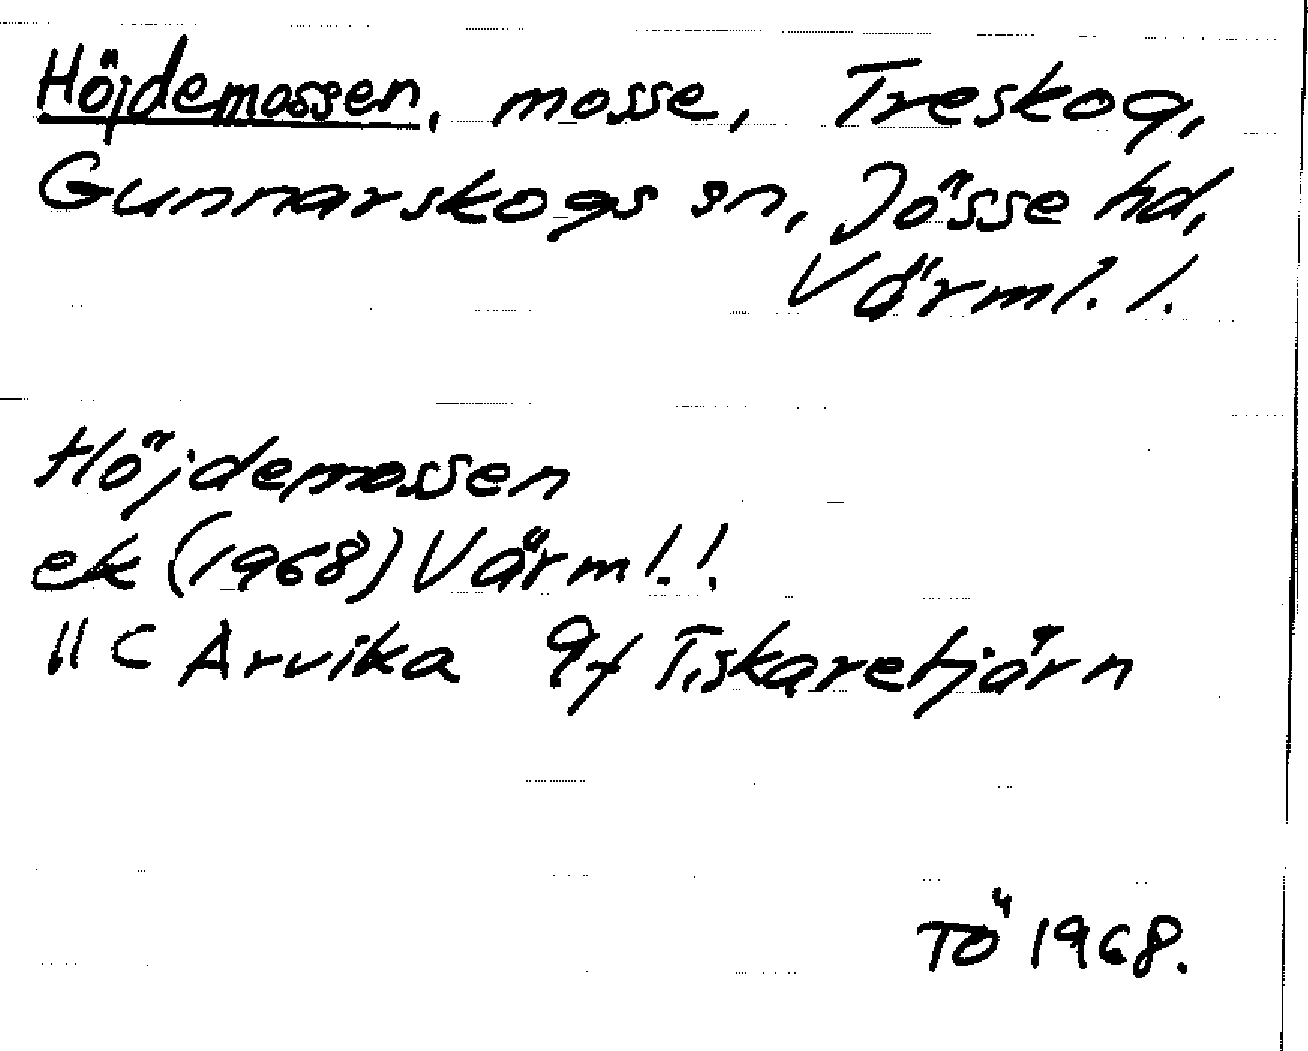 Höjdemossen, mosse, Treskog,
Gunnarskogs sn, Jösse hd,
Värml. l.
Höjdemossen
ek (1968) Värml. l.
11 C Arvika 9f Tiskaretjärn
TÖ 1968.